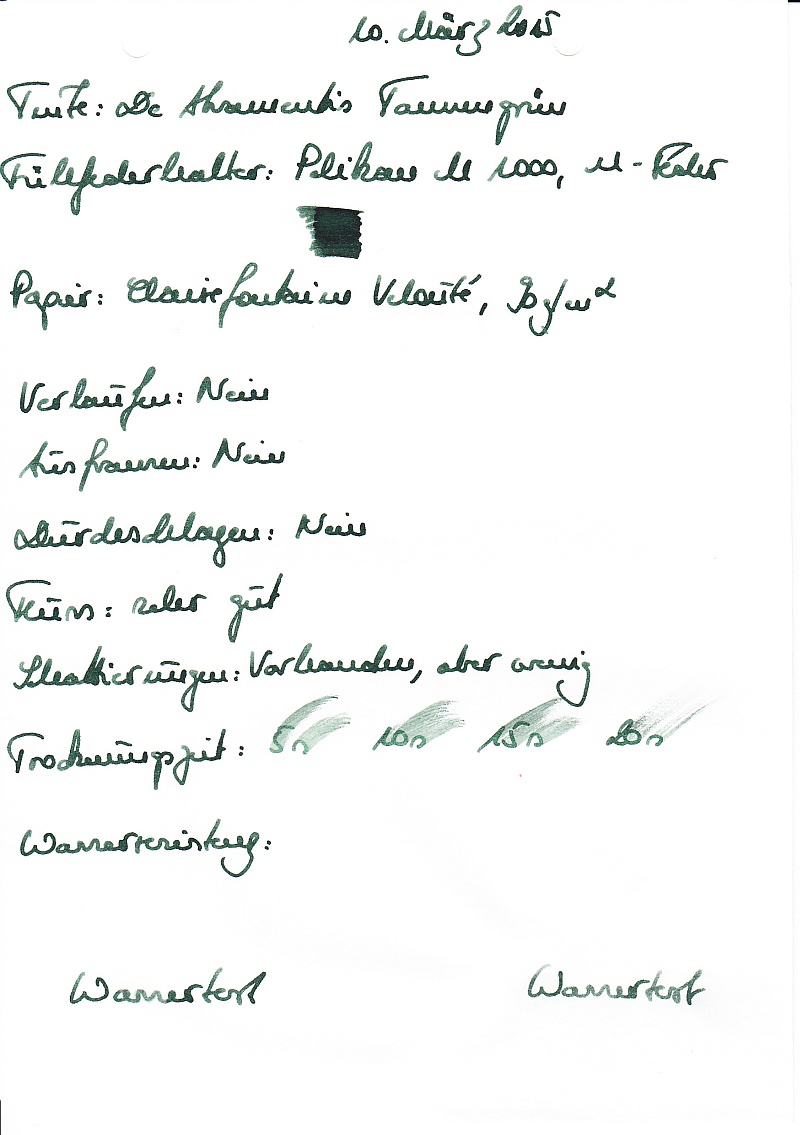 10. März 2015
Tinte: De Atramentis Tannengrün
Füllfederhalter: Pelikan M 1000, M-Feder
Papier: Clairefontaine Velouté, 90 g/m²
Verlaufen: Nein
Ausfransen: Nein
Durchschlagen: Nein
Fluss: sehr gut
Schattierungen: Vorhanden, aber wenig
Trocknungszeit: 5s 10s 15s 20s
Wasserfestigk.:
Wassertest Wassertest